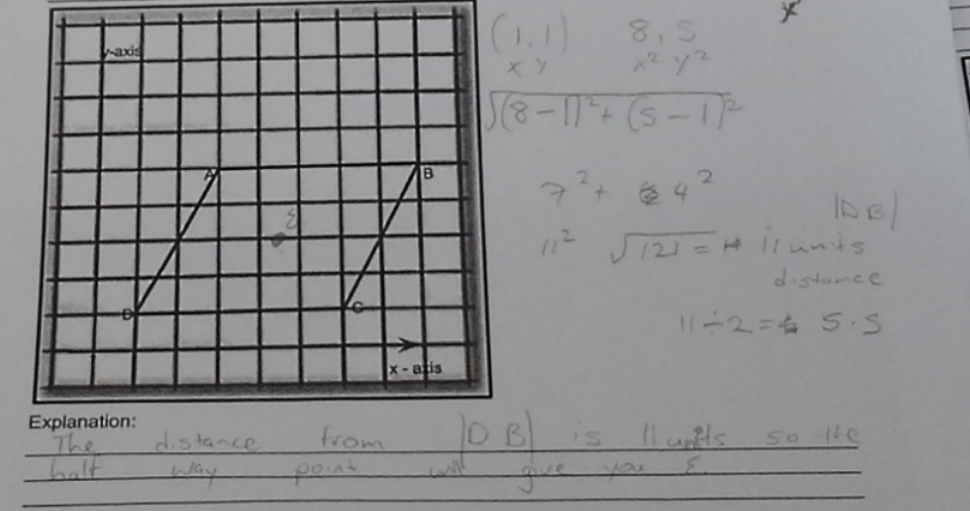 y-axis
A
B
ε
D
C
x - axis
(1,1) 8,5
x y x² y²
√(8-1)²+(5-1)²
7²+ 4²
11² √121 = 11 units
|DB|
distance
11÷2= 5.5
Explanation:
The distance from |DB| is 11 units so the
half way point will give you ε.